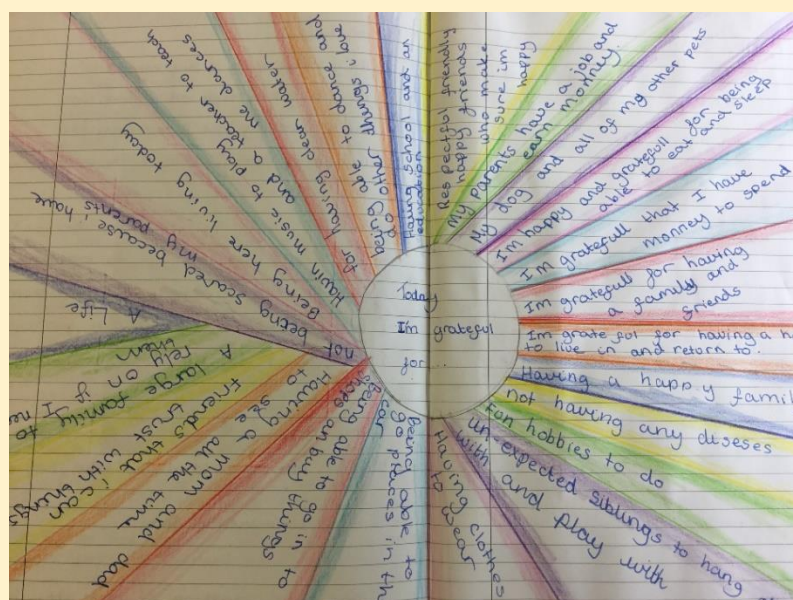 Today
I'm grateful
for...
Having school and an
education
Respectful friendly
happy friends
who make
sure im
happy
My parents have a job and
earn monney.
My dog and all of my other pets
I'm happy and gratefull for being
able to eat and sleep
I'm gratefull that I have
monney to spend
Im gratefull for having
a family and
friends
Im grateful for having a h
to live in and return to.
Having a happy famil
not having any diseses
Fun hobbies to do
un-expected siblings to hang
with and play with
Having clothes
to wear
Being able to
go places in th
car
Being able to go in to
shops an buy things
Having a mom and dad
to see all the time
Friends that i can
trust with things
A large family to
rely on if I ne
them
A Life
not being scared because i have
my parents
Being here living today
Havin music to play
and a teacher to teach
me dances
for having clean water
being able to dance and
do other things i love